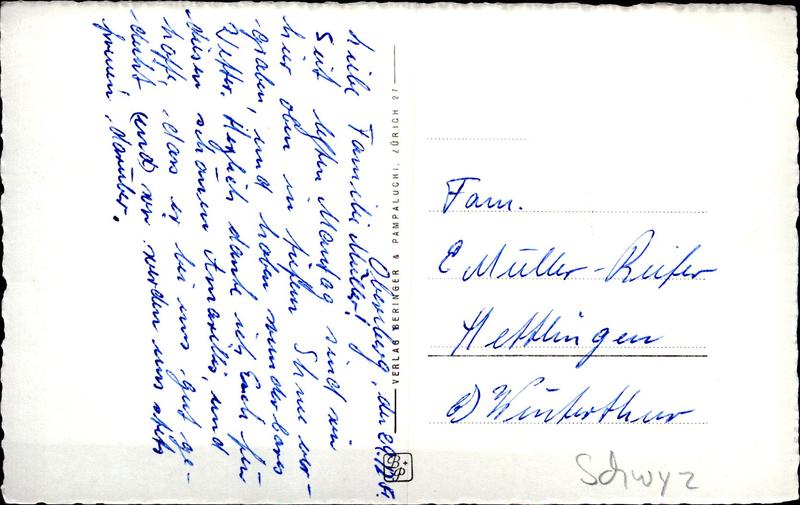 Oberiberg, den 29.12.
Liebe Familie Müller!
Seit letzten Montag sind wir
hier oben in tiefem Schnee ver-
graben, und haben wunderbares
Wetter. Herzlich danke ich Euch für
diesen schönen Amarillis, und
hoffe, dass er bei uns gut ge-
deiht und wir werden uns stets
freuen, darüber.
VERLAG BERINGER & PAMPALUCHI, ZÜRICH 27
Fam.
E Müller-Reifer
Hettlingen
b) Winterthur
Schwyz